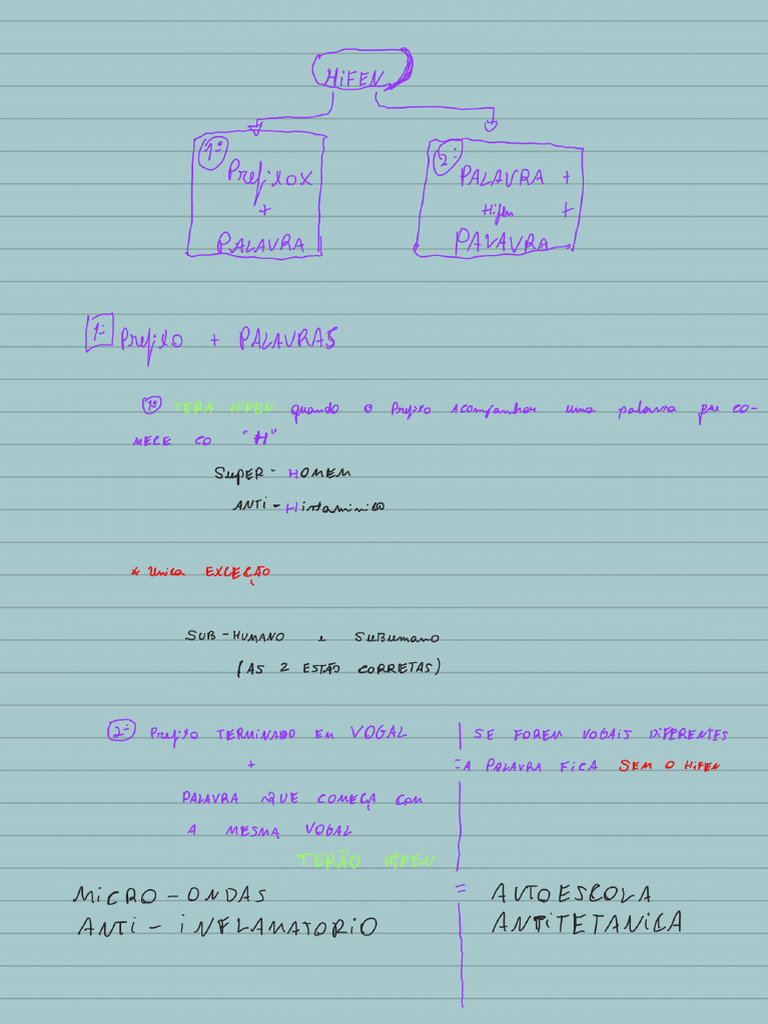 HiFEN
1º
Prefixox
+
PALAVRA
2º
PALAVRA +
Hifen +
PAVAVRA
1- Prefixo + PALAVRAS
1º TERA HIFEN quando o Prefixo Acompanhar uma palavra que co-
MECE CO "H"
SUPER - HOMEM
ANTI - Histaminico
* Unica EXCEÇÃO
SUB - HUMANO e SUBumano
(AS 2 ESTÃO CORRETAS)
2- Prefixo TERMINADO Em VOGAL
+
PALAVRA QUE COMEÇA Com
A MESMA VOGAL
TERÃO HÍFEN
MICRO - ONDAS
ANTI - INFLAMATORIO
SE FOREM VOGAIS DIFERENTES
= A PALAVRA FICA SEM O HIFEN
= AUTOESCOLA
ANTITETANICA